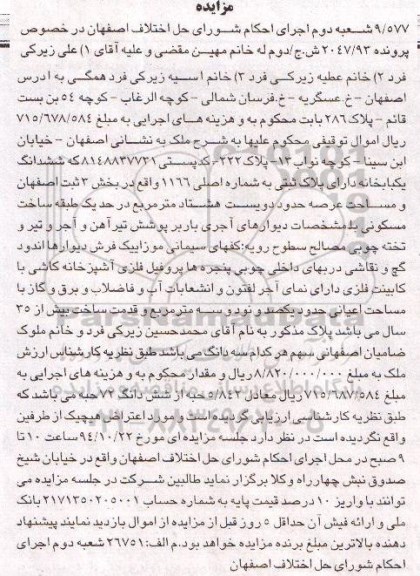 مزایده
۹/۵۷۷ شعبه دوم اجرای احکام شورای حل اختلاف اصفهان در خصوص
پرونده ۲۰۴۷/۹۳ ش.ج/دوم له خانم مهین مقضی و علیه آقای ۱) علی زیرکی
فرد ۲) خانم عطیه زیرکی فرد ۳) خانم آسیه زیرکی فرد همگی به ادرس
اصفهان - خ.عسگریه - خ.فرسان شمالی - کوچه الرغاب - کوچه ۵۴ بن بست
قائم - پلاک ۲۸۶ بابت محکوم به و هزینه های اجرایی به مبلغ ۷۱۵/۶۷۸/۵۸۴
ریال اموال توقیفی محکوم علیها به شرح ملک به نشانی اصفهان - خیابان
ابن سینا - کوچه نواب ۱۳ - پلاک ۲۲۲ - کدپستی ۸۱۴۸۸۳۷۷۳۱ که ششدانگ
یکبابخانه دارای پلاک ثبتی به شماره اصلی ۱۱۶۶ واقع در بخش ۳ ثبت اصفهان
و مساحت عرصه حدود دویست هشتاد مترمربع در حد یک طبقه ساخت
مسکونی با مشخصات دیوارهای آجری باربر پوشش تیرآهن و آجر و تیر و
تخته چوبی مصالح سطوح رویه: کفهای سیمانی موزاییک فرش دیوارها اندود
گچ و نقاشی دربهای داخلی چوبی پنجره ها پروفیل فلزی آشپزخانه کاشی با
کابینت فلزی دارای نمای آجر لفتون و انشعابات آب و فاضلاب و برق و گاز با
مساحت اعیانی حدود یکصد و نود و سه مترمربع و قدمت ساخت بیش از ۳۵
سال می باشد پلاک مذکور به نام آقای محمدحسین زیرکی فرد و خانم ملوک
ضامیان اصفهانی سهم هر کدام سه دانگ می باشد طبق نظریه کارشناس ارزش
ملک به مبلغ ۸/۸۲۰/۰۰۰/۰۰۰ ریال و مقدار محکوم به و هزینه های اجرایی به
مبلغ ۷۱۵/۶۸۷/۵۸۴ ریال معادل ۵/۸۴۲ حبه از شش دانگ ۷۲ حبه می باشد که
طبق نظریه کارشناسی ارزیابی گردیده است و مورد اعتراض هیچیک از طرفین
واقع نگردیده است در نظر دارد جلسه مزایده ای مورخ ۹۴/۱۰/۲۲ ساعت ۱۰ تا
۹ صبح در محل اجرای احکام شورای حل اختلاف اصفهان واقع در خیابان شیخ
صدوق نبش چهارراه وکلا برگزار نماید طالبین شرکت در جلسه مزایده می
توانند با واریز ۱۰ درصد قیمت پایه به شماره حساب ۲۱۷۱۳۵۰۲۰۵۰۰۱ بانک
ملی و ارائه فیش آن حداقل ۵ روز قبل از مزایده از اموال بازدید نمایند پیشنهاد
دهنده بالاترین مبلغ برنده مزایده خواهد بود. م الف: ۲۶۷۵۱ شعبه دوم اجرای
احکام شورای حل اختلاف اصفهان